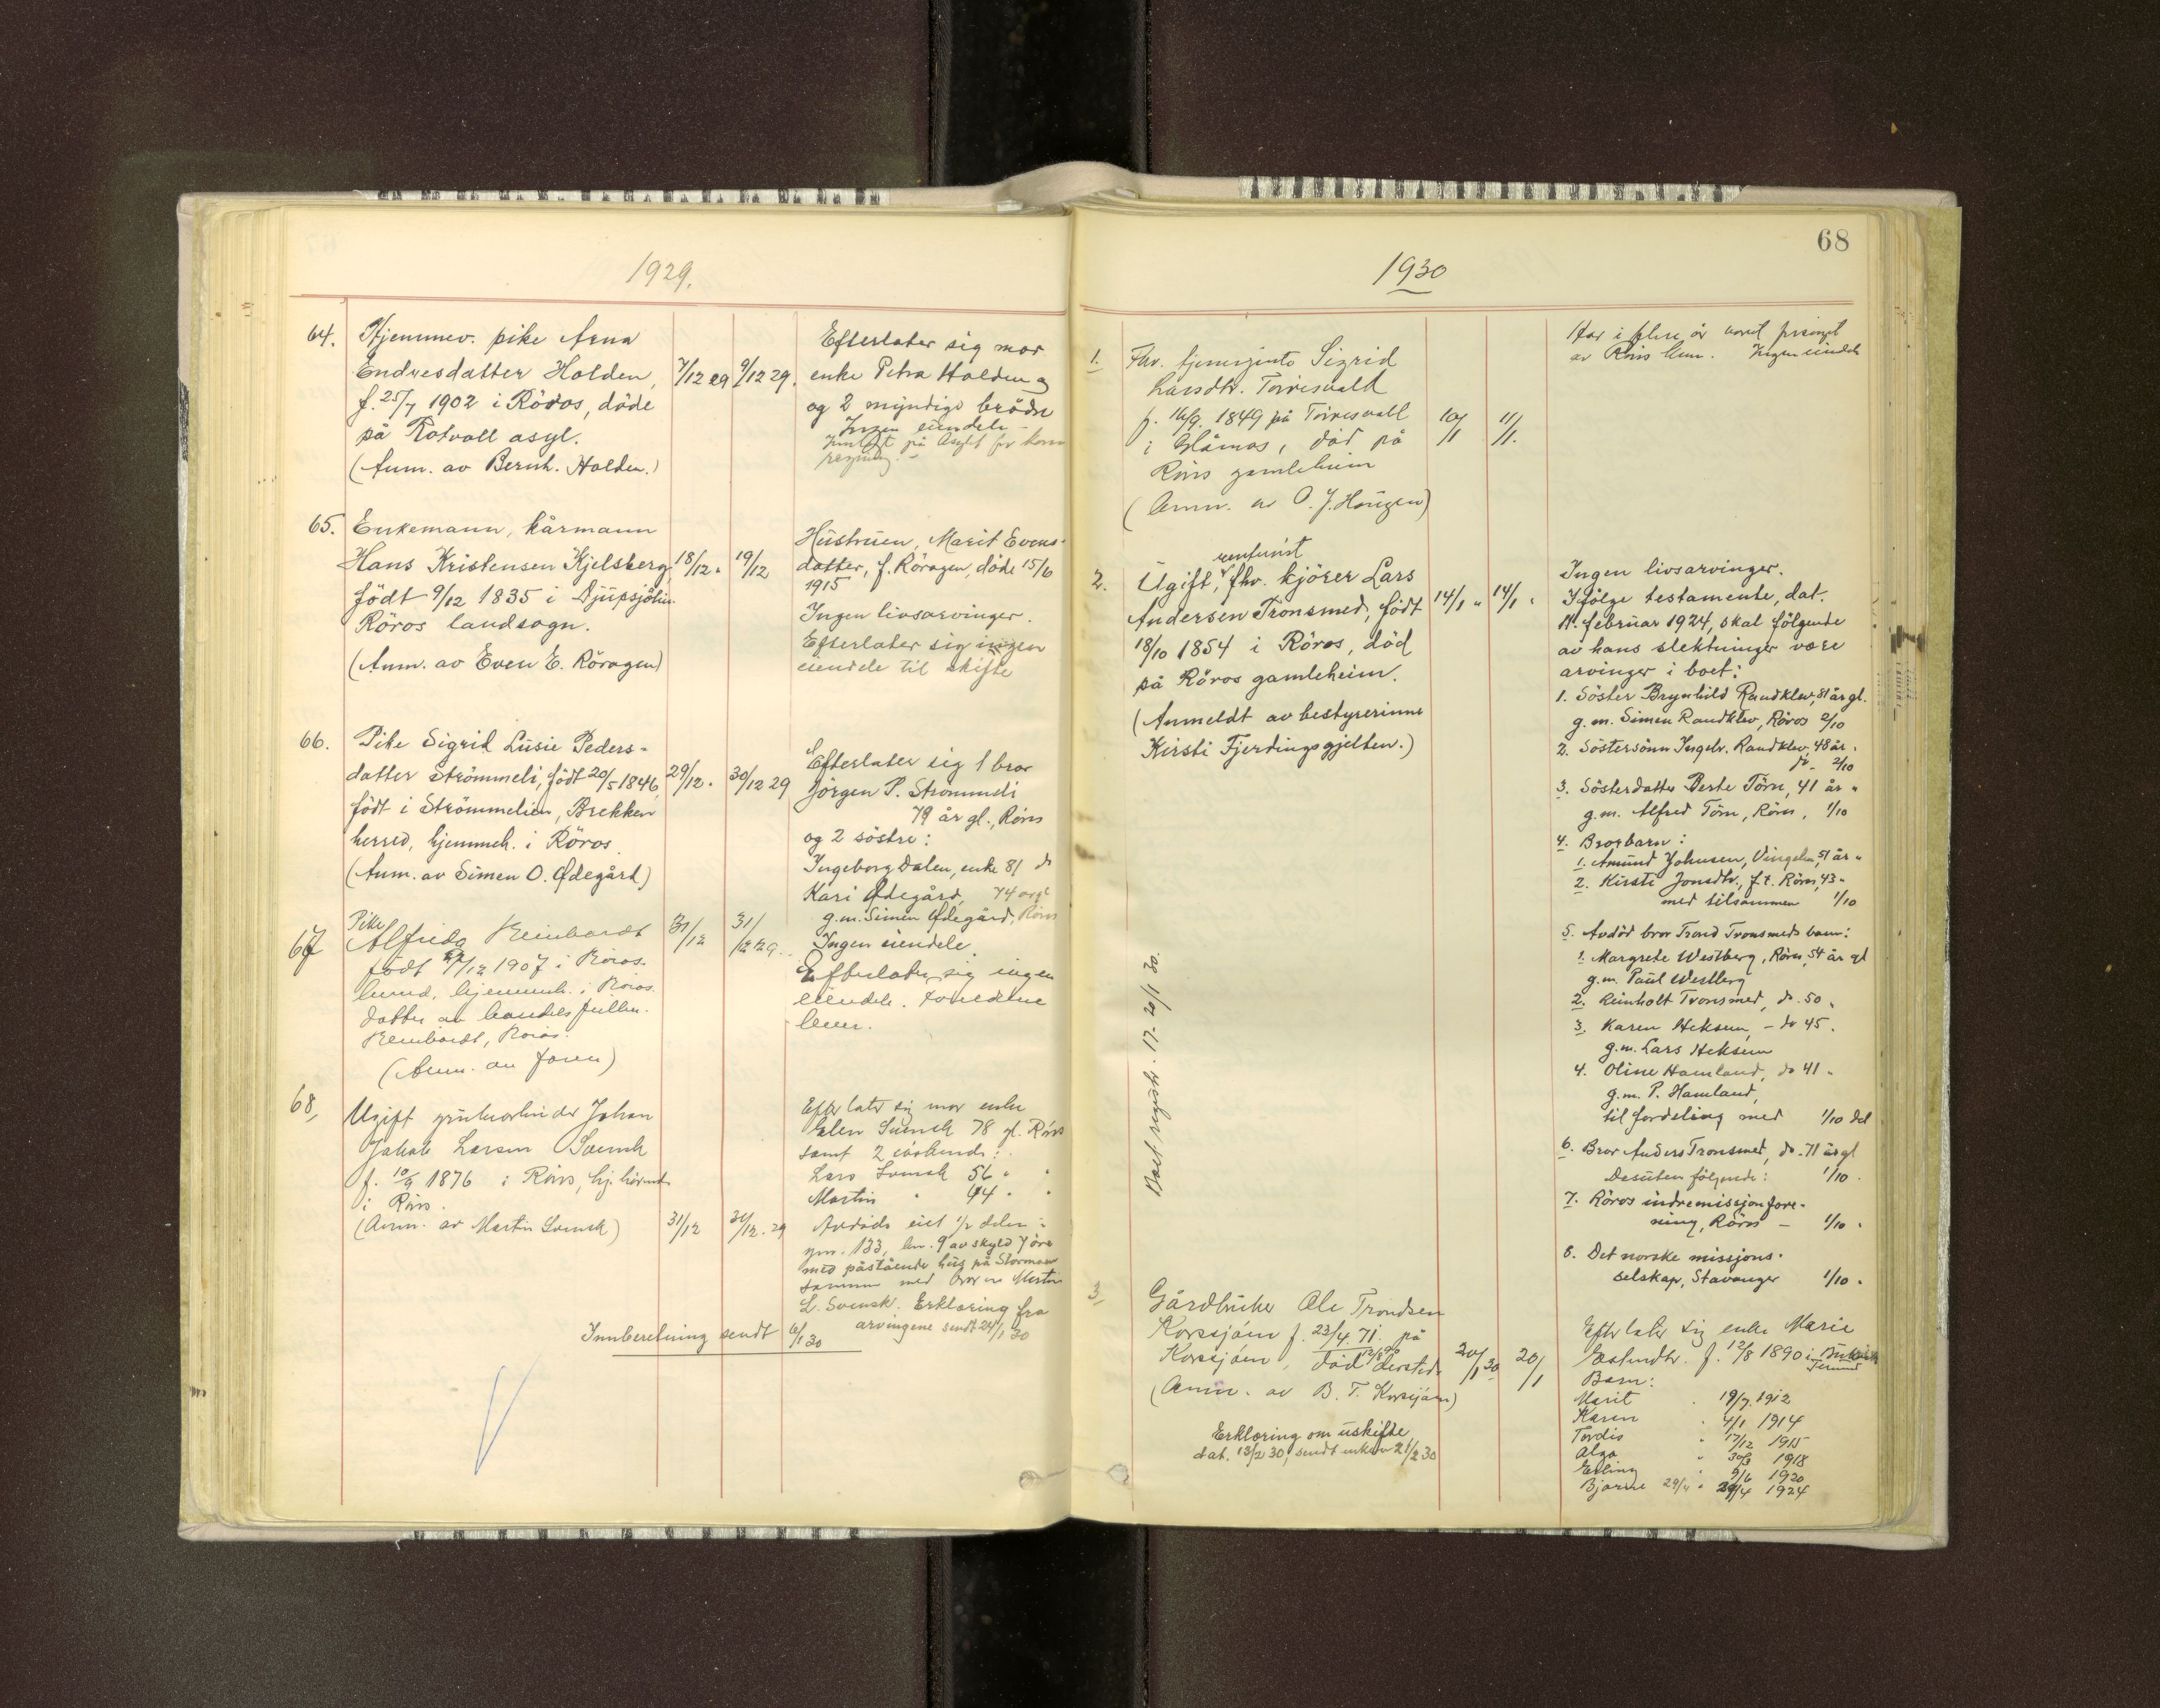 1929.
64. Hjemmev. pike Anna
Endresdatter Holden, 7/12 29 9/12 29.
f. 25/7 1902 i Röros, döde
på Rotvoll asyl.
(Anm. av Bernh. Holden.)
Efterlater sig mor
enke Petra Holden og
og 2 myndige brödre
Ingen eiendele -
på Asylet for
65. Enkemann, kårmann
Hans Kristensen Kjelsberg, 18/12 " 19/12
födt 9/12 1835 i Djupsjölien
Röros landsogn.
(Anm. av Even E. Röragen)
Hustruen, Marit Evens-
datter, f. Röragen, döde 15/6
1915
Ingen livsarvinger.
Efterlater sig ingen
eiendele til skifte
66. Pike Sigrid Lusie Peders-
datter Strömmeli, födt 20/5 1846, 29/12 . 30/12 29
födt i Strömmelien, Brekken
herred, hjemmeh. i Röros.
(Anm. av Simen O. Ødegård)
Efterlater sig 1 bror
Jörgen P. Strömmeli
79 år gl., Röros
og 2 söstre:
Ingeborg Dalen, enke 81 do
Kari Ødegård, 74 år gl
g.m. Simen Ødegård, Röros
Ingen eiendele.
67 Pike
Alfrida Reinhardt 31/12 31/12 29..
födt /12 1907 i Röros.
herred, hjemmeh. i Röros.
datter av handelsfullm.
Reinhardt, Röros.
(Anm. av faren)
Efterlater sig ingen
eiendele. Foreldrene
lever.
68, Ugift grubearbeider Johan
Jakob Larsen Svensk
f. 10/9 1876 i Röros, hj. hörende
i Röros.
(Anm. av Martin Svensk) 31/12 31/12. 29
Efterlater sig mor enke
Elen Svensk 78 gl. Röros
samt 2 södskende:
Lars Svensk 56 " "
Martin " 44 " "
Avdöde eiet 1/2 delen i
gnr. 133, bnr. 9 av skyld 7 öre
med påstående hus på Stormoen
sammen med broren Martin
L. Svensk. Erklæring fra
arvingene sendt 24/1 30
Innberetning sendt 6/1 30
68
1930
1. Fhv. tjenestejente Sigrid
Larsdtr. Torresvold
f. 16/9. 1849 på Torresvoll 10/1 11/1.
i Glåmos, död på
Röros gamleheim
(Anm. av O. J. Hougen)
Har i flere år været forsörget
av Röros kom. Ingen eiendele
2. Ugift, rentenist fhv. kjörer Lars
Andersen Tronsmed, födt 14/1 " 14/1 "
18/10 1854 i Röros, död
på Röros gamleheim.
(Anmeldt av bestyrerinne
Kirsti Fjerdingsgjelten.)
Boet registr. 17-20/1 30.
Ingen livsarvinger.
Ifölge testamente, dat.
11. februar 1924, skal fölgende
av hans slektninger være
arvinger i boet:
1. Söster Brynhild Randklev, 81 år gl.
g.m. Simen Randklev, Röros 2/10
2. Söstersönn Ingebr. Randklev, 48 år.
do. 2/10
3. Sösterdatter Berte Törn, 41 år "
g.m. Alfred Törn, Röros, 1/10
4. Brorbarn:
1. Amund Johnsen, Vingelen, 51 år "
2. Kirsti Jonsdtr., f.t. Röros, 43 "
med tilsammen 1/10
5. Avdöd bror Trond Tronsmeds barn:
1. Margrete Westberg, Röros, 54 år gl
g.m. Paul Westberg
2. Reinholt Tronsmed, do. 50 "
3. Karen Heksem, - do 45 .
g.m. Lars Heksem
4. Oline Hamland, do 41 "
g.m. P. Hamland,
til fordeling med 1/10 del
6. Bror Anders Tronsmed, do. 71 år gl
Desuten fölgende: 1/10 .
7. Röros indremissjonsfore-
ning, Röros - 1/10 .
8. Det norske missjons-
selskap, Stavanger 1/10 .
3, Gårdbruker Ole Trondsen
Korssjöen f. 23/4. 71. på
Korssjöen, död dersteds 20/1 30 20/1
(Anm. av B. T. Korssjöen)
Erklæring om uskifte
dat. 13/2 30, sendt enken 21/2 30
Efterlater sig enke Marie
f. 12/8 1890 i
Barn:
Marit . 19/7. 1912
Karen . 4/1 1914
Tordis " 17/12 1915
Alga " 30/3 1918
Erling . 9/6 1920
Bjarne 29/4 " 29/4 1924